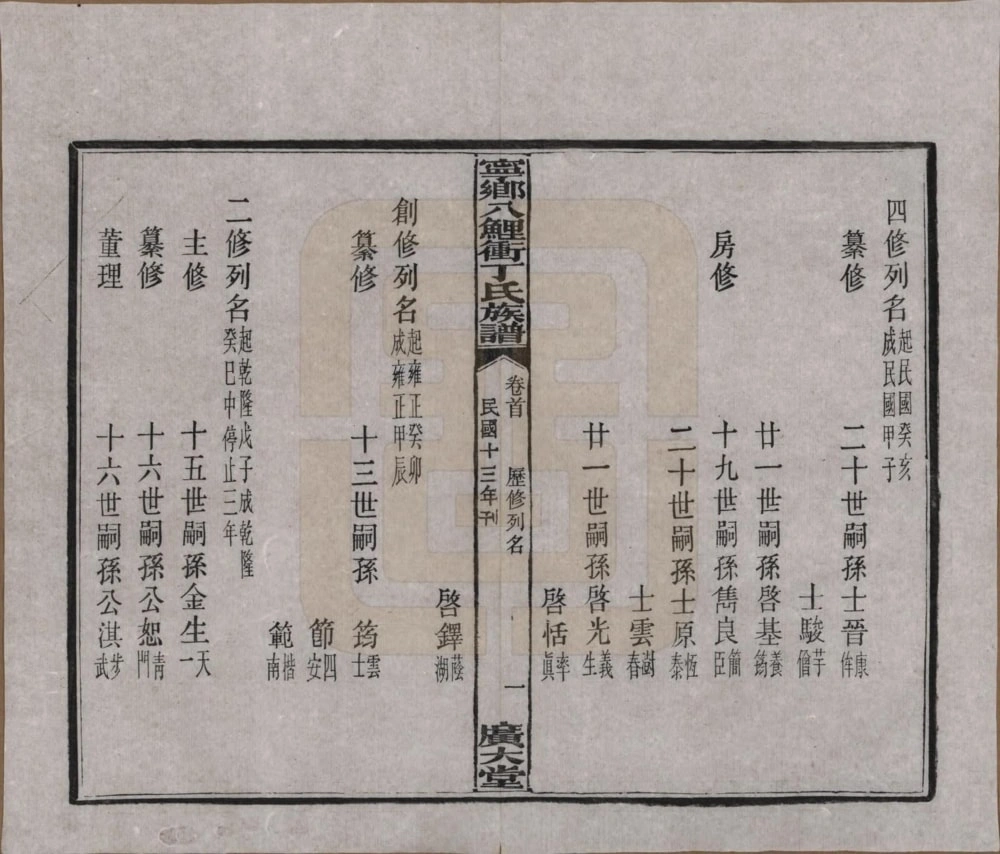 四修列名起民國癸亥成民國甲子
纂修 二十世嗣孫士晉康侔
士駿芋僧
廿一世嗣孫啓基養筠
房修 十九世嗣孫雋良簡臣
二十世嗣孫士原恆泰
士雲澍春
廿一世嗣孫啓光義生
啓恬率真
寧鄉八鯉衝丁氏族譜 卷首 歷修列名 民國十三年刊 一 廣大堂
啓鐸蔭湖
創修列名起雍正癸卯成雍正甲辰
纂修 十三世嗣孫筠雲士
節四安
範楷南
二修列名起乾隆戊子成乾隆癸巳中停止三年
主修 十五世嗣孫金生天一
纂修 十六世嗣孫公恕青門
董理 十六世嗣孫公淇步武